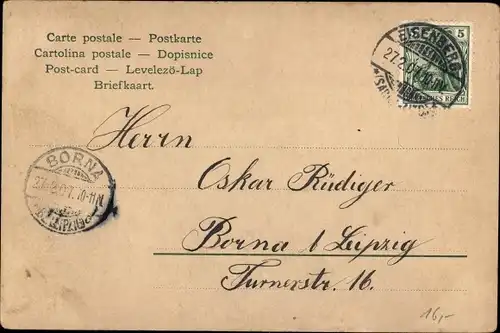 Carte postale — Postkarte
Cartolina postale — Dopisnice
Post-card — Levelezö-Lap
Briefkaart.
5
EISENBERG
27.2.07.
REICH
BORNA
27.2.07.10-11N.
Herrn
Oskar Rüdiger
Borna b/ Leipzig
Turnerstr. 16.
16,-